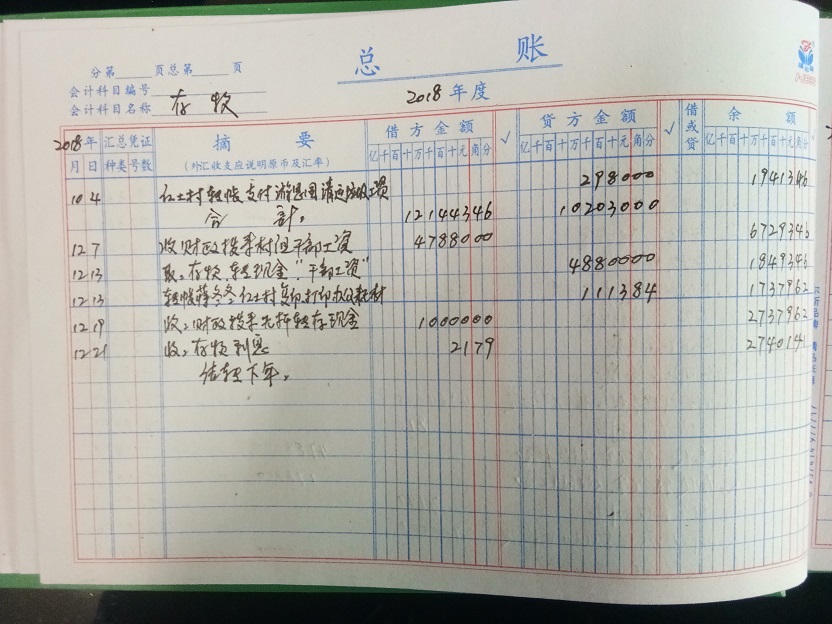 总 账
分第 页总第 页
会计科目编号
会计科目名称 存款
2018 年度
2018年 汇总凭证 摘 要 借方金额 √ 贷方金额 √ 借或贷 余 额
月 日 种类 号数 (外汇收支应说明原币及汇率) 亿千百十万千百十元角分 亿千百十万千百十元角分 亿千百十万千百十元角分
10 4 红土村转账支付游思国清 工资 298000 1941346
合 计。 12144346 10203000
12 7 收财政拨来村组干部工资 4788000 6729346
12 13 取:存款转现金"干部工资" 4880000 1849346
12 13 转账 冬冬红土村复印打印办公耗材 111384 1737962
12 19 收:财政拨来 转存现金 1000000 2737962
12 21 收:存款利息 2179 2740141
结转下年。